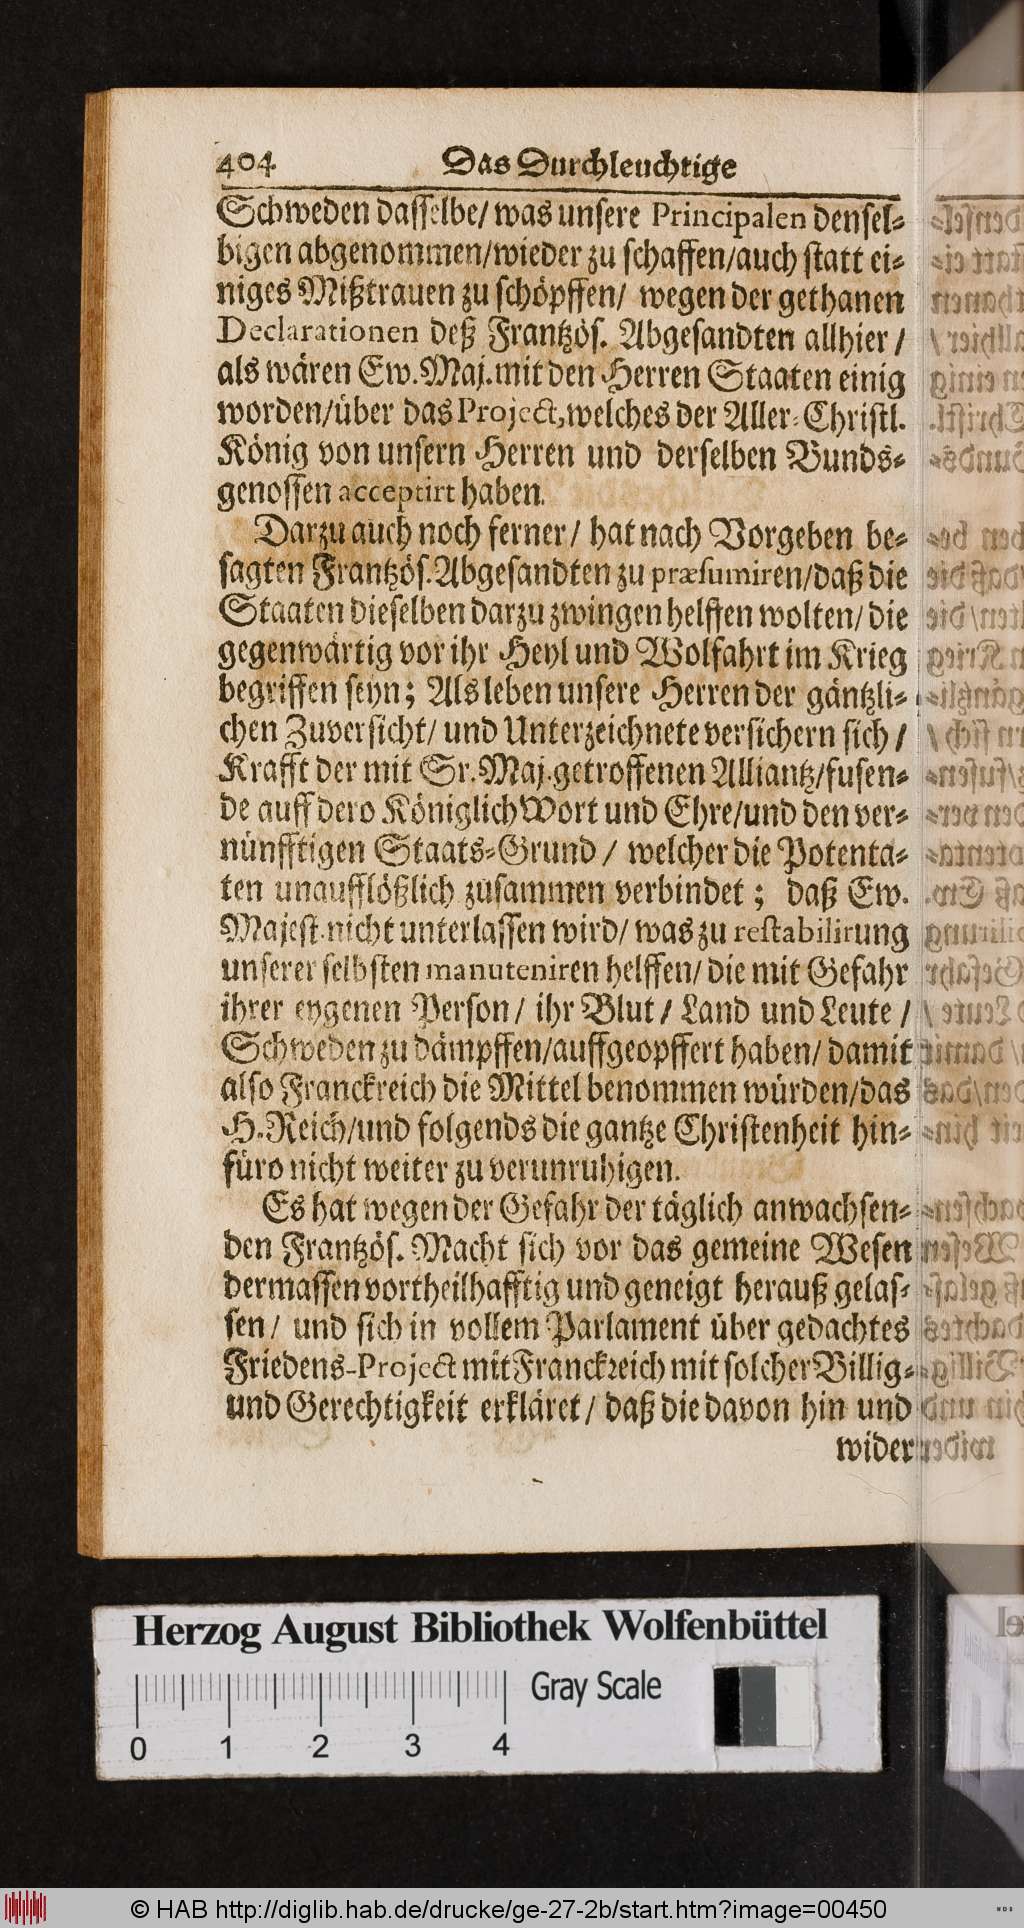 404 Das Durchleuchtige
Schweden dasselbe/ was unsere Principalen densel-
bigen abgenommen/wieder zu schaffen/auch statt ei-
niges Mißtrauen zu schöpffen/ wegen der gethanen
Declarationen deß Frantzös. Abgesandten allhier /
als wären Ew. Maj. mit den Herren Staaten einig
worden/über das Project, welches der Aller-Christl.
König von unsern Herren und derselben Bunds-
genossen acceptirt haben.
Darzu auch noch ferner/ hat nach Vorgeben be-
sagten Frantzös. Abgesandten zu præsumiren/daß die
Staaten dieselben darzu zwingen helffen wolten/ die
gegenwärtig vor ihr Heyl und Wolfahrt im Krieg
begriffen seyn; Als leben unsere Herren der gäntzli-
chen Zuversicht/ und Unterzeichnete versichern sich /
Krafft der mit Sr. Maj. getroffenen Alliantz/fusen-
de auff dero Königlich Wort und Ehre/und den ver-
nünfftigen Staats-Grund / welcher die Potenta-
ten unaufflößlich zusammen verbindet; daß Ew.
Majest. nicht unterlassen wird/ was zu restabilirung
unserer selbsten manuteniren helffen/ die mit Gefahr
ihrer eygenen Person / ihr Blut / Land und Leute /
Schweden zu dämpffen/auffgeopffert haben/ damit
also Franckreich die Mittel benommen würden/das
H. Reich/und folgends die gantze Christenheit hin-
füro nicht weiter zu verunruhigen.
Es hat wegen der Gefahr der täglich anwachsen-
den Frantzös. Macht sich vor das gemeine Wesen
dermassen vortheilhafftig und geneigt herauß gelas-
sen/ und sich in vollem Parlament über gedachtes
Friedens-Project mit Franckreich mit solcher Billig-
und Gerechtigkeit erkläret / daß die davon hin und
wider
Herzog August Bibliothek Wolfenbüttel
Gray Scale
0 1 2 3 4
© HAB http://diglib.hab.de/drucke/ge-27-2b/start.htm?image=00450